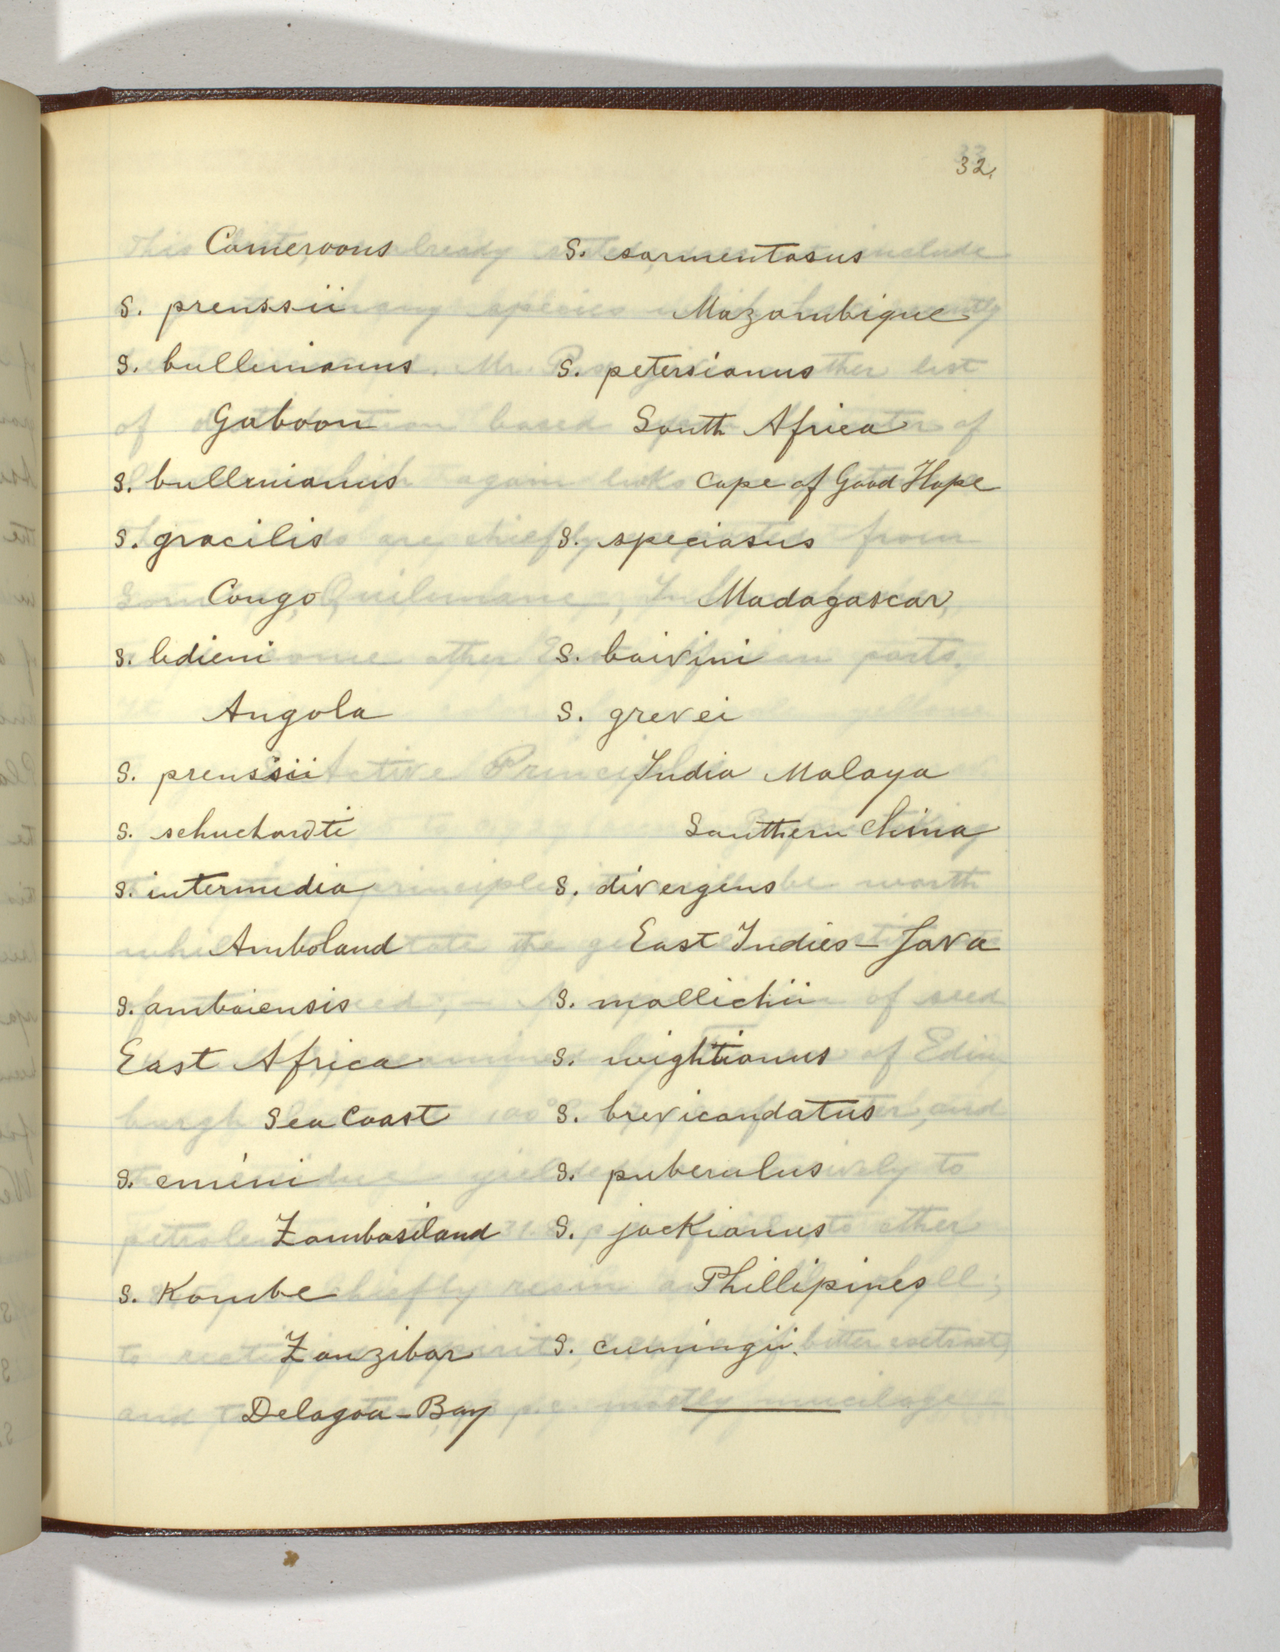 32.
Cameroons
S. preussii
S. bullenianus
Gaboon
S. bullenianus
S. gracilis
Congo
S. ledieni
Angola
S. preussii
S. schuchardti
S. intermedia
Amboland
S. amboiensis
East Africa
Sea Coast
S. emini
Zambasiland
S. Kombe
Zanzibar
Delagoa-Bay
S. sarmentosus
Mozambique
S. petersianus
South Africa
Cape of Good Hope
S. speciosus
Madagascar
S. boivini
S. grevei
India Malaya
Southern China
S. divergens
East Indies - Java
S. wallichii
S. wightianus
S. brevicaudatus
S. puberulus
S. jackianus
Phillipines
S. cumingii.